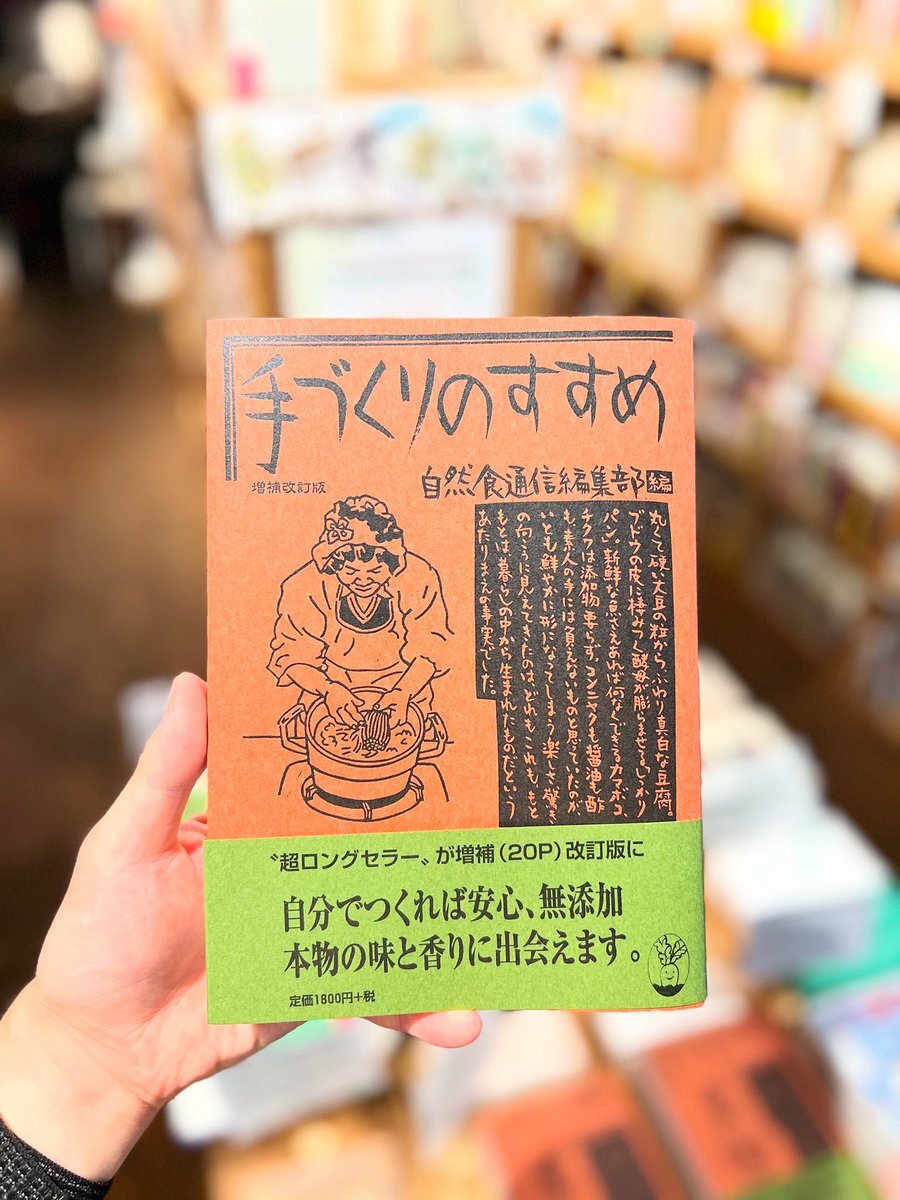 手づくりのすすめ
増補改訂版
自然食通信編集部編
丸くて硬い大豆の粒から、ふわり真白な豆腐。
ブドウの皮に棲みつく酵母が膨らませるいっかり
パン、新鮮な魚さえあれば何なくできるカマボコ、
チクワは添加物要らず。コンニャクも醤油も酢
も、素人の手には負えないものと思っていたのが、
いとも鮮やかに形になってしまう楽しさ、驚き。
の向こうに見えてきたのは、どれもこれも、もと
もとは暮らしの中から生まれたものだという
あたりまえの事実でした。
〝超ロングセラー〟が増補(20P)改訂版に
自分でつくれば安心、無添加
本物の味と香りに出会えます。
定価1800円+税